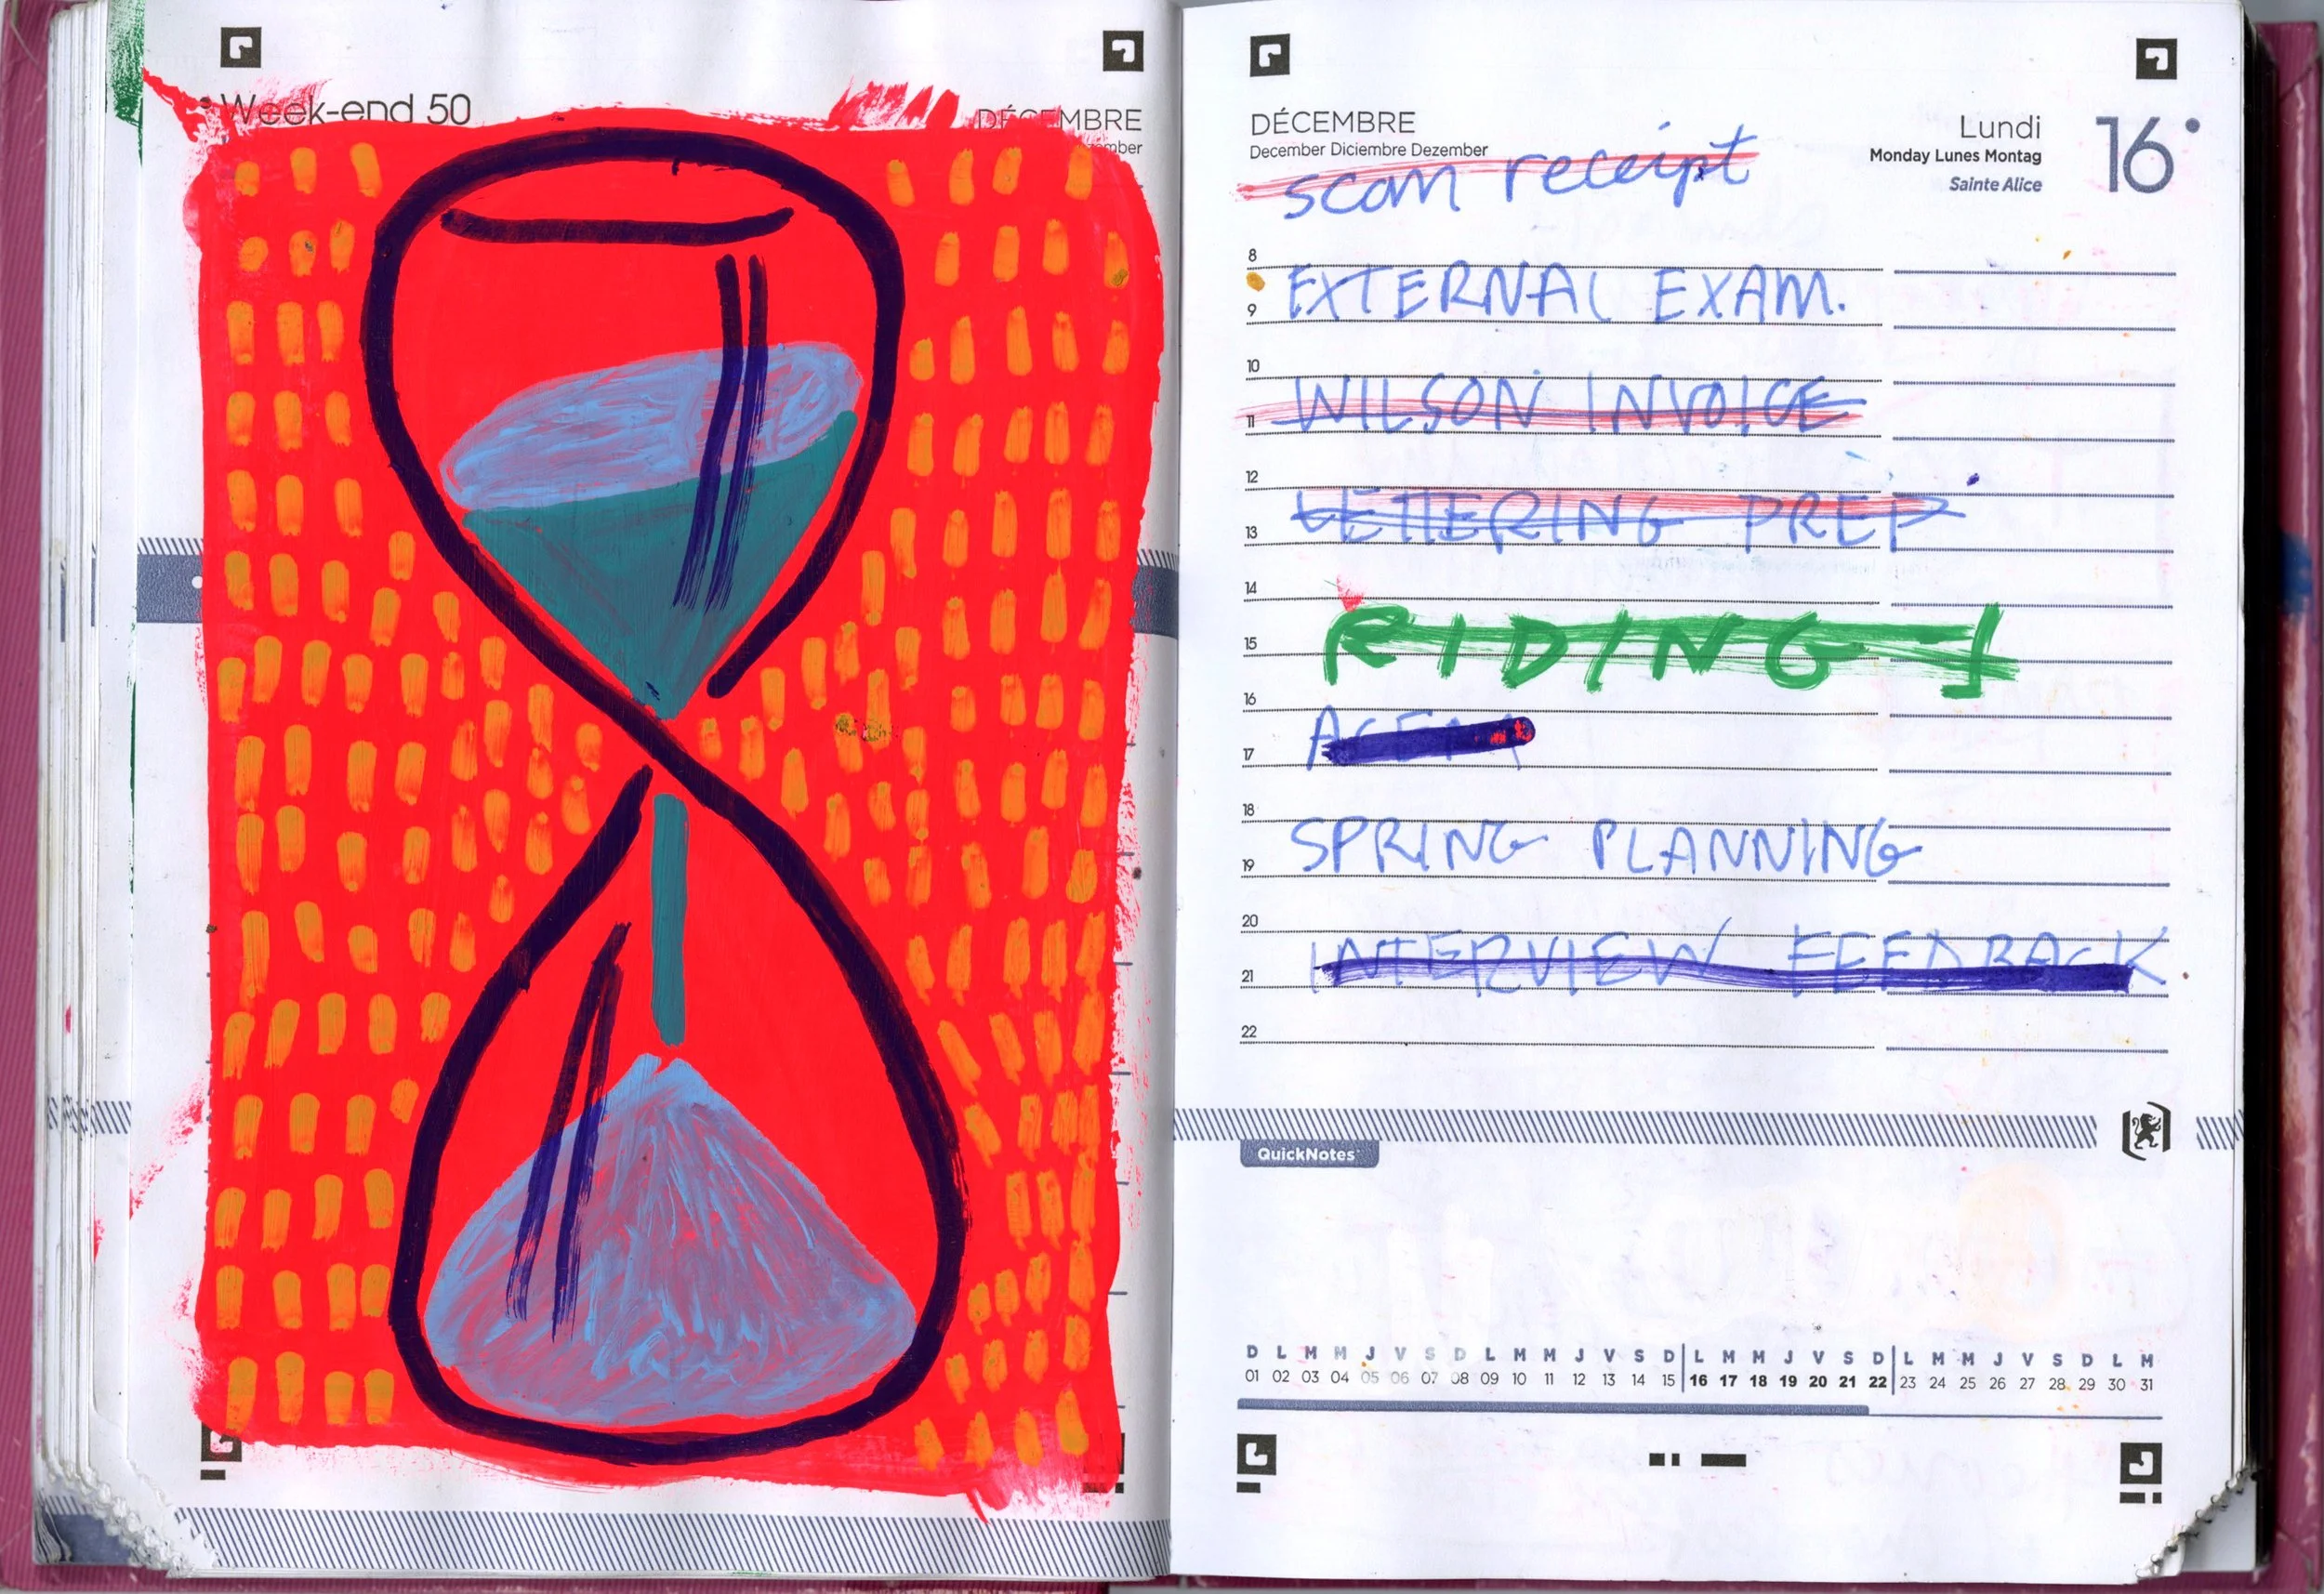 Week-end 50
DÉCEMBRE
DÉCEMBRE
December Diciembre Dezember
Lundi
Monday Lunes Montag
Sainte Alice
16
scan receipt
8
EXTERNAL EXAM.
9
10
WILSON INVOICE
11
12
LETTERING PREP
13
14
RIDING 1
15
16
17
18
SPRING PLANNING
19
20
INTERVIEW FEEDBACK
21
22
QuickNotes
D L M M J V S D L M M J V S D L M M J V S D L M M J V S D L M
01 02 03 04 05 06 07 08 09 10 11 12 13 14 15 16 17 18 19 20 21 22 23 24 25 26 27 28 29 30 31